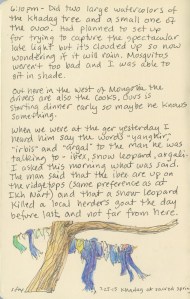 6:10pm - Did two large watercolors of
the khadag tree and a small one of
the ovoo. Had planned to set up
for trying to capture the spectacular
late light but it's clouded up so now
wondering if it will rain. Mosquitos
weren't too bad and I was able to
sit in shade.
Out here in the west of Mongolia the
drivers are also the cooks,
starting dinner early so maybe he knows
something.
When we were at the ger yesterday I
heard him say the words "yangir",
"irbis" and "argal" to the man he was
talking to - ibex, snow leopard, argali.
I asked this morning what was said.
The man said that the ibex are up on
the ridgetops (same preference as at
Ikh Nart) and that a snow leopard
killed a local herder's goat the day
before last and not far from here.
khadag at